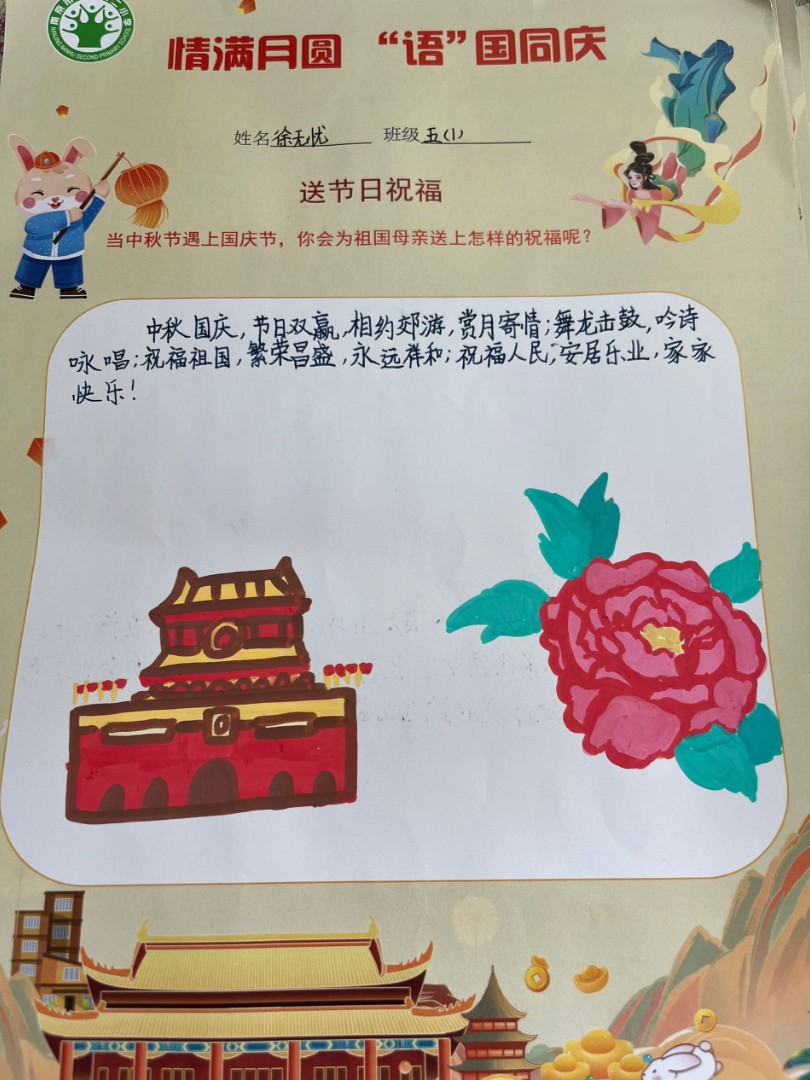 情满月圆 “语”国同庆
姓名徐无忧 班级五(1)
送节日祝福
当中秋节遇上国庆节，你会为祖国母亲送上怎样的祝福呢？
中秋国庆，节日双赢，相约郊游，赏月寄情；舞龙击鼓，吟诗
咏唱；祝福祖国，繁荣昌盛，永远祥和；祝福人民，安居乐业，家家
快乐！